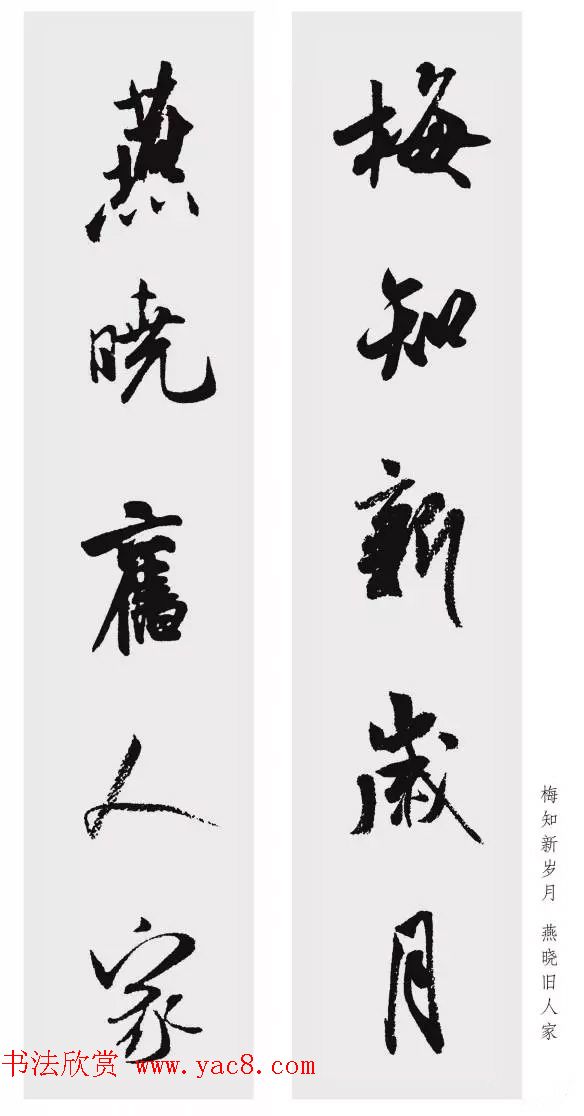 梅知新歲月
燕曉舊人家
梅知新岁月 燕晓旧人家
书法欣赏 www.yac8.com